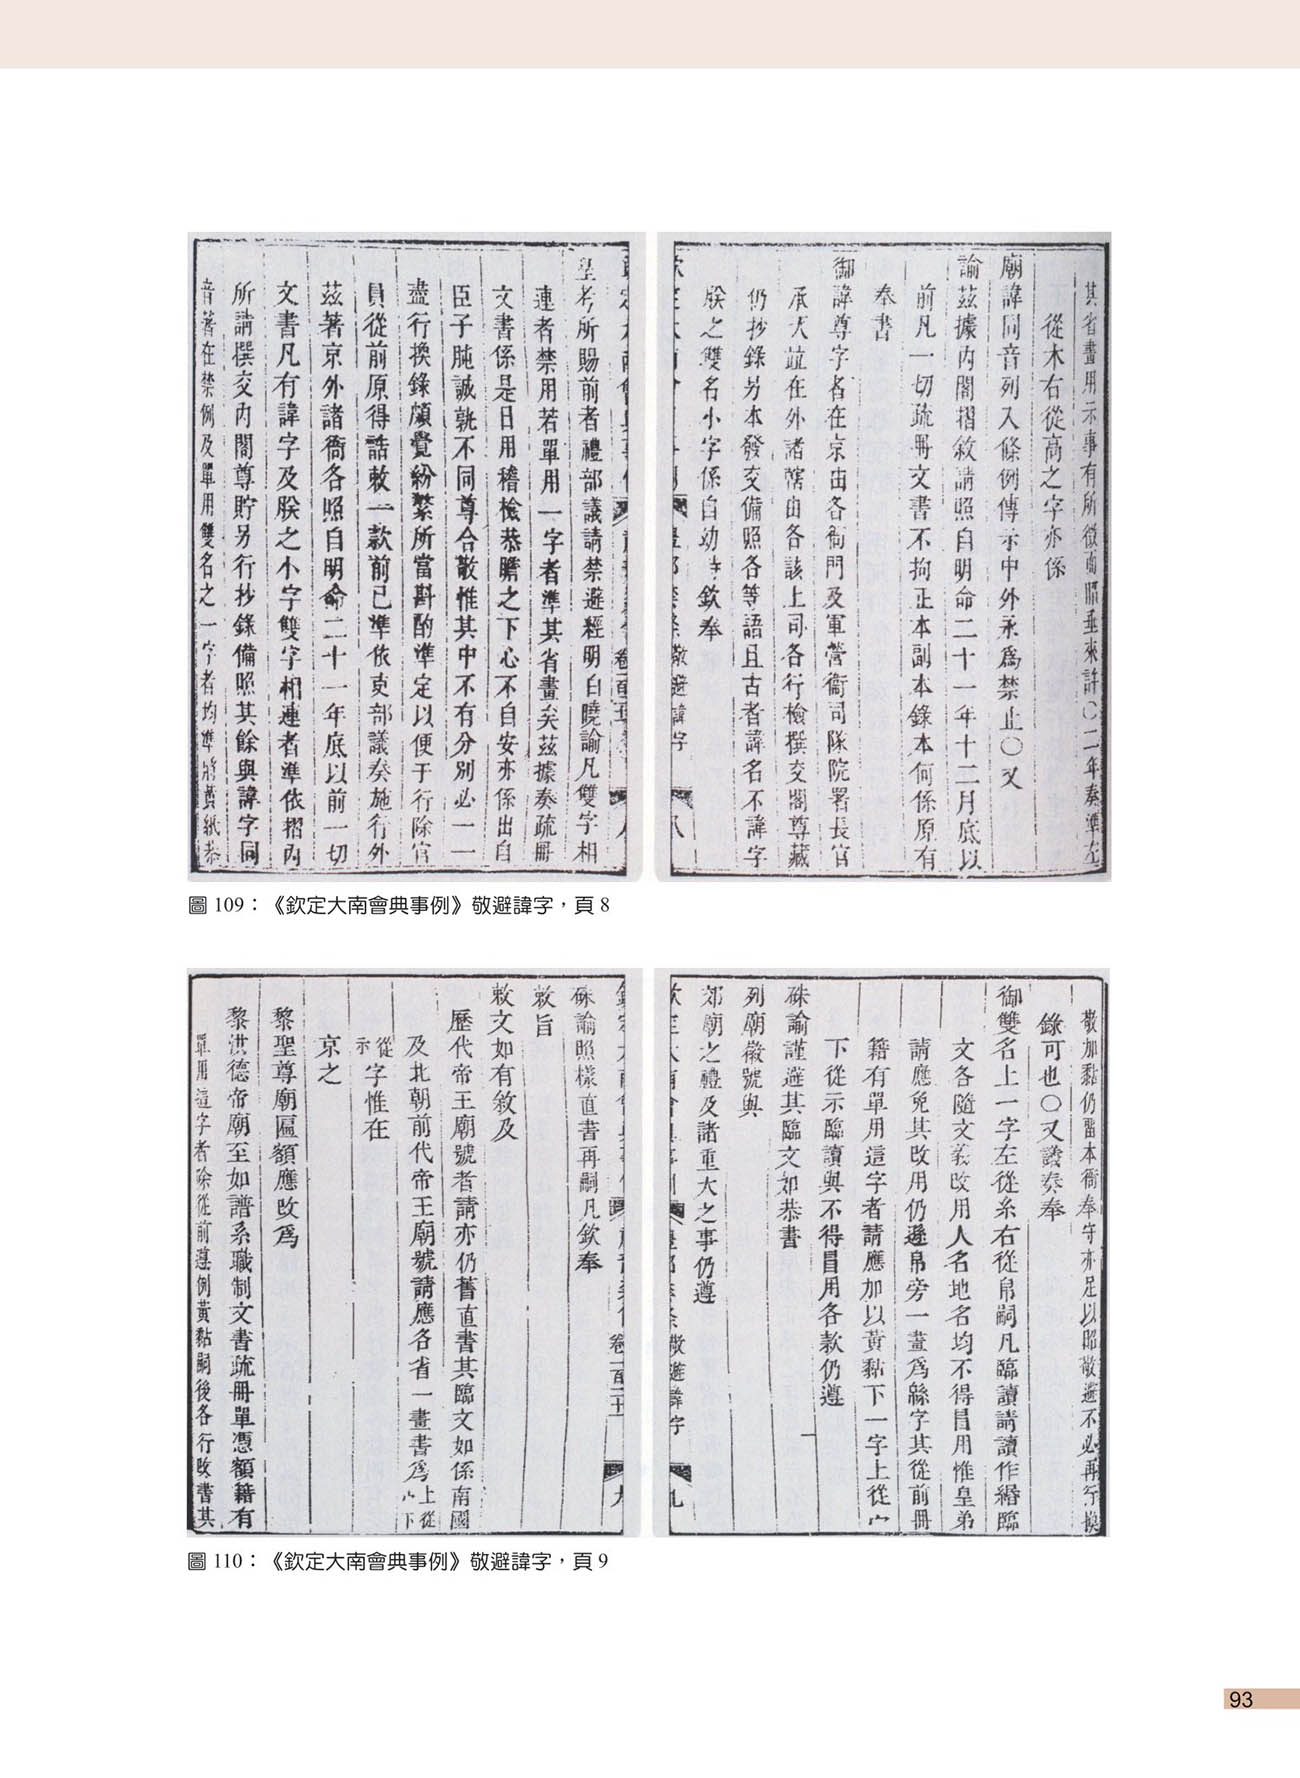 其省畫用示事有所徵而昭垂來許〇二年奏準左
從木右從高之字亦係
廟諱同音列入條例傳示中外永爲禁止〇又
諭茲據內閣摺敘請照自明命二十一年十二月底以
前凡一切疏冊文書不拘正本副本錄本何係原有
奉書
御諱尊字者在京由各衙門及軍營衞司隊院署長官
承大竝在外諸轄由各該上司各行檢撰交閣尊藏
仍抄錄另本發交備照各等語且古者諱名不諱字
朕之雙名小字係自幼時欽奉
欽定大南會典事例 禮部 禁條 敬避諱字 八
欽定大南會典事例 卷一百二十一 八
皇考所賜前者禮部議請禁避經明白曉諭凡雙字相
連者禁用若單用一字者準其省畫矣茲據奏疏冊
文書係是日用稽檢恭瞻之下心不自安亦係出自
臣子肫誠孰不同尊合敬惟其中不有分別必一一
盡行換錄頗覺紛繁所當斟酌準定以便于行除官
員從前原得誥敕一款前已準依吏部議奏施行外
茲著京外諸衙各照自明命二十一年底以前一切
文書凡有諱字及朕之小字雙字相連者準依摺內
所請撰交內閣尊貯另行抄錄備照其餘與諱字同
音著在禁例及單用雙名之一字者均準將黃紙恭
圖 109：《欽定大南會典事例》敬避諱字，頁 8
敬加黏仍留本衙奉守亦足以昭敬避不必再行換
錄可也〇又議奏奉
御雙名上一字左從糸右從帛嗣凡臨讀請讀作緡臨
文各隨文義改用人名地名均不得冒用惟皇弟
請應免其改用仍遜帛旁一畫爲緜字其從前冊
籍有單用這字者請應加以黃黏下一字上從宀
下從示臨讀與不得冒用各款仍遵
硃諭謹避其臨文如恭書
列廟徽號與
郊廟之禮及諸重大之事仍遵
欽定大南會典事例 禮部 禁條 敬避諱字 九
欽定大南會典事例 卷一百二十一 九
硃諭照樣直書再嗣凡欽奉
敕旨
敕文如有敘及
歷代帝王廟號者請亦仍舊直書其臨文如係南國
及北朝前代帝王廟號請應各省一畫書爲上從宀下
從示字惟在
京之
黎聖尊廟匾額應改爲
黎洪德帝廟至如譜系職制文書疏冊單憑額籍有
單用這字者除從前遵例黃黏嗣後各行改書其
圖 110：《欽定大南會典事例》敬避諱字，頁 9
93